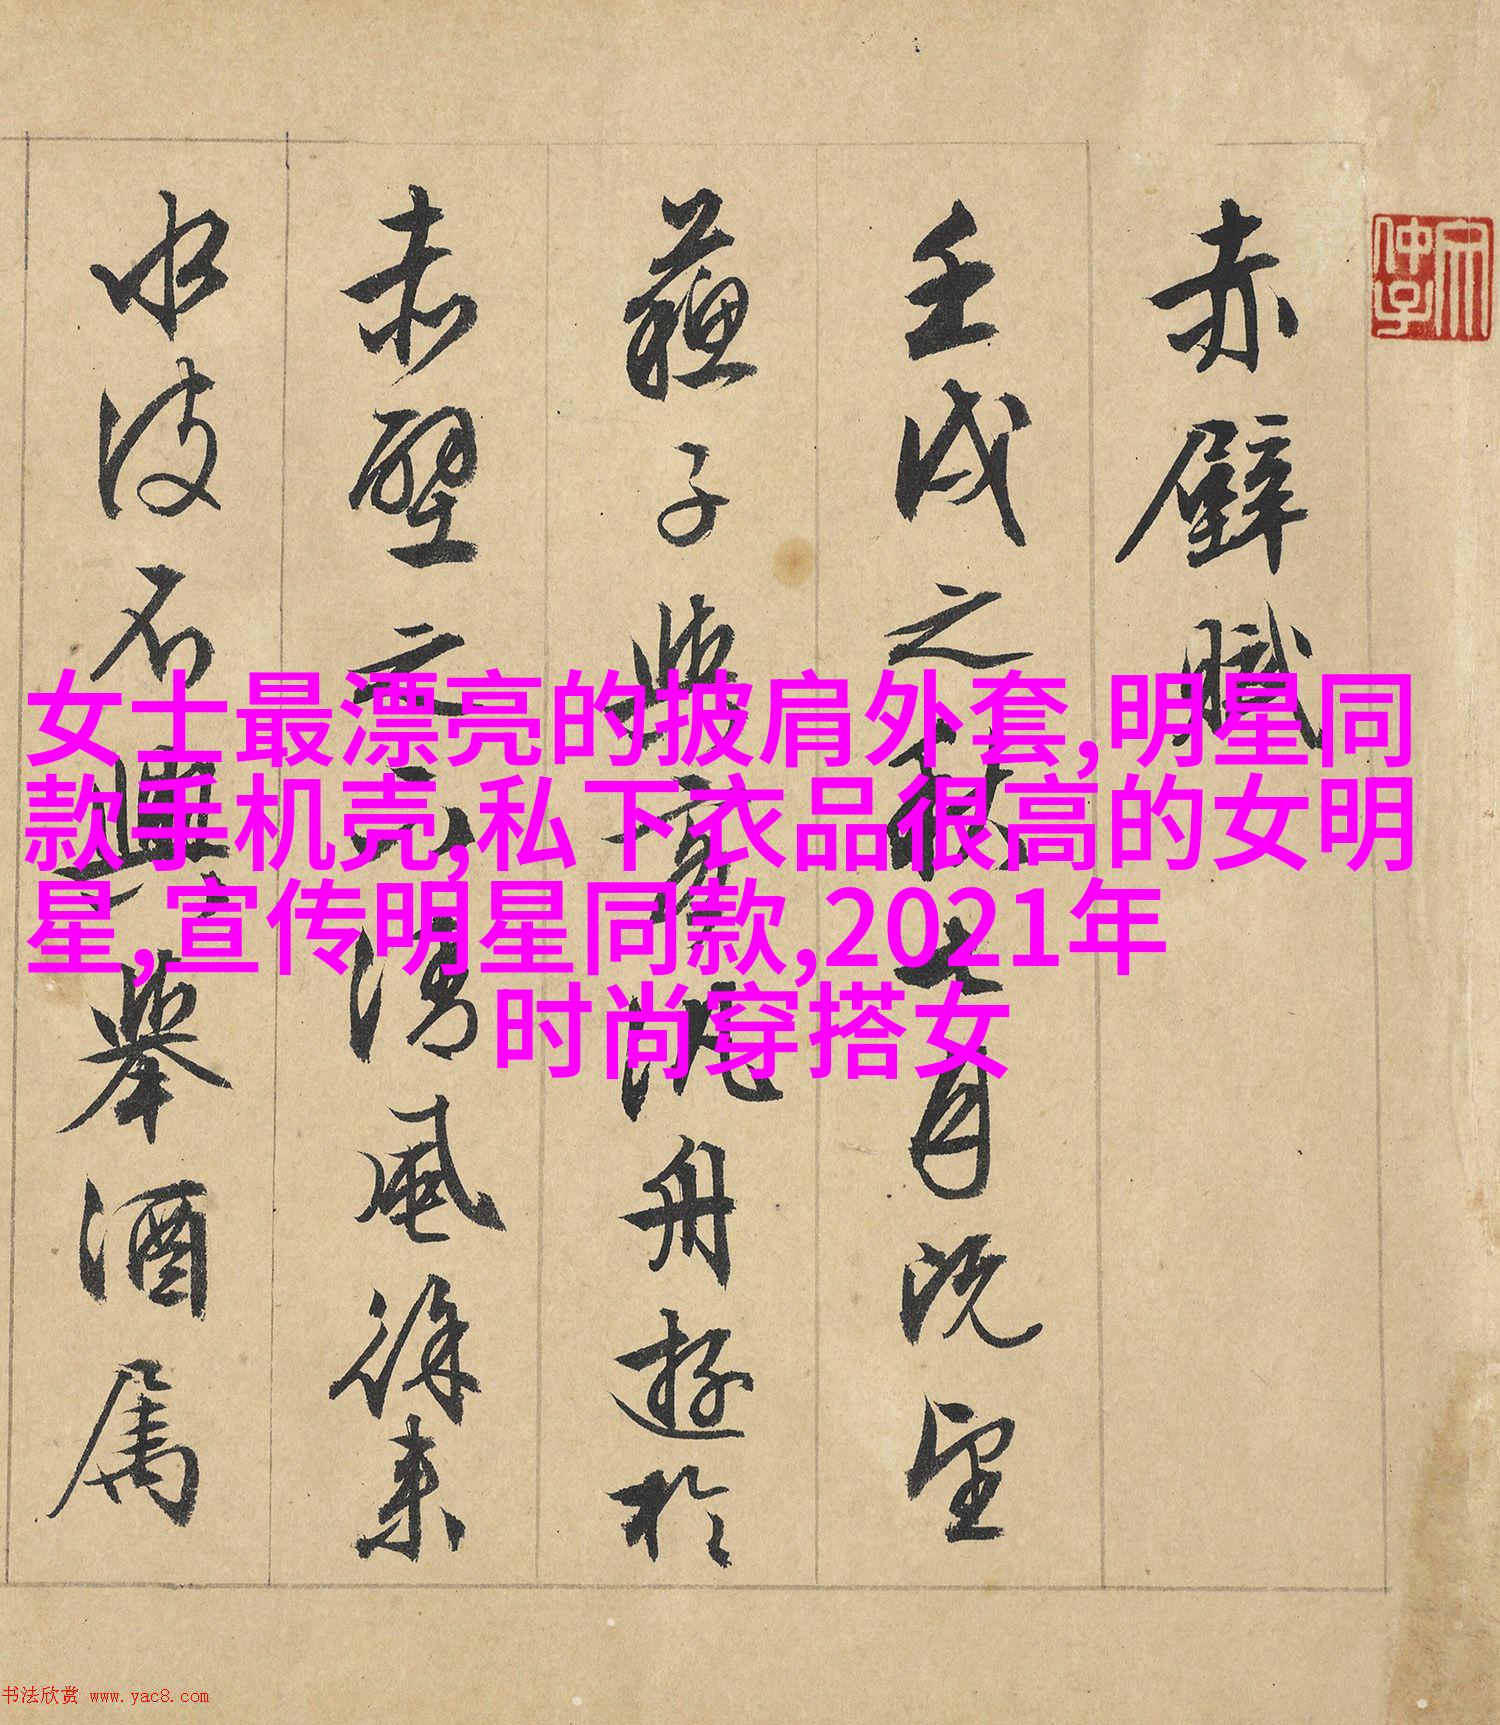 赤壁賦
壬戌之秋七月既望
蘇子與客汎舟遊於
赤壁之下清風徐來
水波不興舉酒屬
女士最漂亮的披肩外套,明星同
款手机壳,私下衣品很高的女明
星,宣传明星同款,2021年
时尚穿搭女
书法欣赏 www.yac8.com